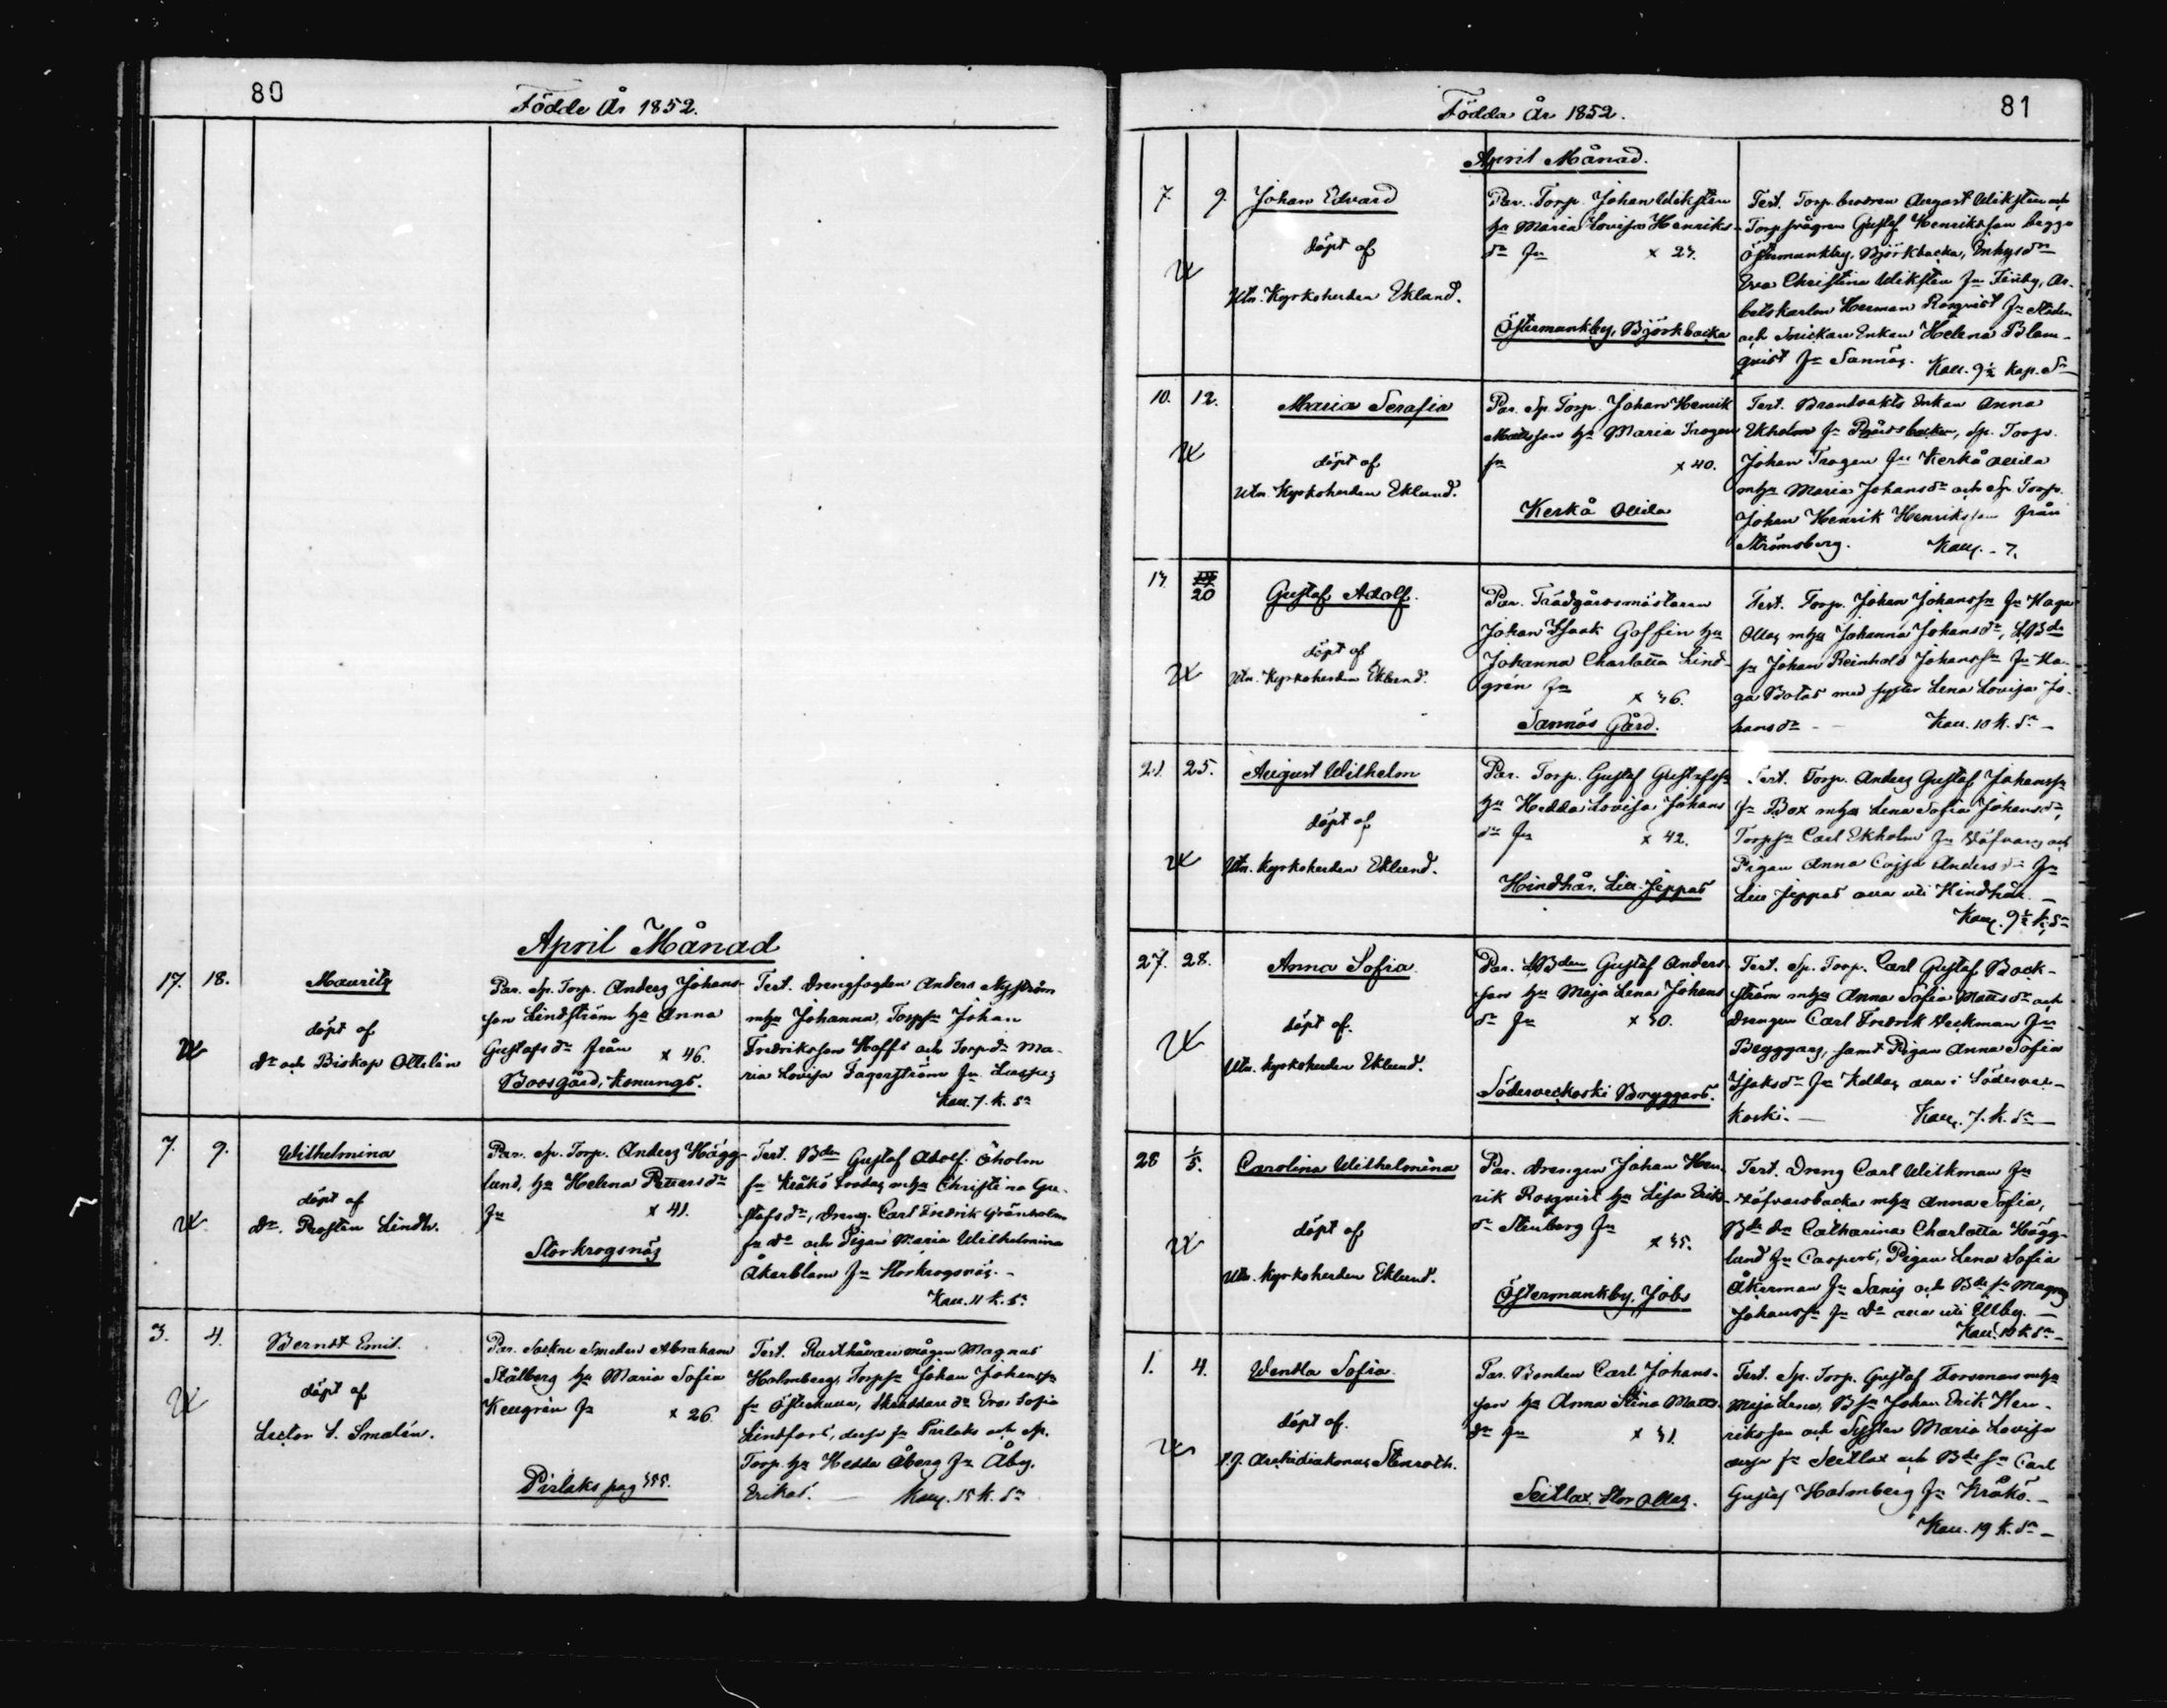 80
Födde År 1852.
April Månad
17. 18. Mauritz
döpt af
Dr och Biskop Ottelin
Par. Sp. Torp. Anders Johans-
son Lindström hu Anna
Gustafs dr från x 46.
Boosgård, Konungs.
Test. Drengfogden Anders Nyström
mhu Johanna, Torpsn Johan
Fredriksson Hoffs och Torpdr Ma-
ria Lovisa Fagerström fn
Kau. 7. k. Sr
7. 9. Wilhelmina
döpt af
Dr. Prosten Lindh.
Par. Sp. Torp. Anders Hägg-
lund, hu Helena Petters dr
fn x 41.
Storkrogsnäs
Test. Bdn Gustaf Adolf Öholm
fn Kråkö mhu Christina Gu-
stafs dr, Dreng. Carl Fredrik Grönholm
fn do och Pigan Maria Wilhelmina
Åkerblom fn Storkrogsnäs. -
Kau. 11 k. Sr
3. 4. Berndt Emil.
döpt af
Lector S. Smalén.
Par. Sockne Smeden Abraham
Stålberg hu Maria Sofia
fn x 26
Pirlaks pag 355.
Test. Rusthållaremågen Magnus
Holmberg, Torpsn Johan Johanssn
fn Skräddare dr Eva Sofia
Lindfors, fn Pirlaks och Sp.
Torp. hu Hedda Åberg fn Åby,
Erikas. Kau. 15 k. Sr
81
Födda År 1852.
April Månad.
7. 9. Johan Edvard
döpt af
Utn. Kyrkoherden Eklund.
Par. Torp. Johan Wiksten
hu Maria Lovisa Henriks-
dr fn x 27.
Östermunkby, Björkbacka
Test. Torp. brodren August Wiksten och
Torpmågen Gustaf Henriksson begge
Östermunkby, Björkbacka, Inhys dr
Eva Christina Wiksten fn Finby, Ar-
betskarlen Herman Rosqvist fn Staden
och Snickare Enkan Helena Blom-
qvist fn Sannäs. Kau. 9½ kop. Sr
10. 12. Maria Serafia
döpt af
Utn. Kyrkoherden Eklund.
Par. Sp. Torp. Johan Henrik
Mattsson hu Maria Trogen
fn x 40.
Kerkå Ollila
Test. Brandvakts Enkan Anna
Ekholm fn Sp. Torp.
Johan Trogen fn Kerkå Ollila
mhu Maria Johansdr och Sp. Torp.
Johan Henrik Henriksson från
Strömsberg. Kau. - 7.
17 20 Gustaf Adolf.
döpt af
Utn. Kyrkoherden Eklund.
Par. Trädgårdsmästaren
Johan Isaak Goffin hu
Johanna Charlotta Lind-
grén fn x 46.
Sannäs Gård.
Test. Torp. Johan Johanssn fn Haga
Ollas mhu Johanna Johans dr, LBde
sn Johan Reinhold Johanssn fn Ha-
ga Botas med syster Lena Lovisa Jo-
hans dr - Kau. 10 k. Sr -
21. 25. August Wilhelm
döpt af
Utn. Kyrkoherden Eklund.
Par. Torp. Gustaf Gustafssn
hu Hedda Lovisa Johans
dr fn x 42.
Hindhår, Lill-Jeppas
Test. Torp. Anders Gustaf Johanssn
fn Box mhu Lena Sofia Johans dr,
Torpsn Carl Ekholm fn och
Pigan Anna Cajsa Anders dr fn
Lill Jeppas alla uti Hindhår. -
Kau. 9½ k. Sr
27. 28. Anna Sofia
döpt af.
Utn. Kyrkoherden Eklund.
Par. LBden Gustaf Anders-
son hu Maja Lena Johans
dr fn x 30.
Söderveckoski Bryggars.
Test. Sp. Torp. Carl Gustaf Back-
ström mhu Anna Sofia Matts dr och
Drengen Carl Fredrik Veckman fn
Bryggars, samt Pigan Anna Sofia
Isaks dr fn alla i Söderveck-
koski. - Kau. 7. k. Sr -
28 1/5. Carolina Wilhelmina
döpt af
Utn. Kyrkoherden Eklund.
Par. Drengen Johan Hen-
rik Rosqvist hu Lisa Eriks
dr Stenberg fn
x 35.
Östermunkby, Jobs
Test. Dreng Carl Wilkman fn
mhu Anna Sofia,
Bde dr Catharina Charlotta Hägg-
lund fn Caspers, Pigan Lena Sofia
Åkerman fn och Bde sn Magnus
Johanssn fn do alla uti Illby. -
Kau. 10 k. Sr -
1. 4. Wendla Sofia
döpt af.
V.J. Archidiakonus Stenroth.
Par. Bonden Carl Johans-
son hu Anna Stina Matts-
dr fn x 31
Seitlax, Stor Ollas.
Test. Sp. Torp. Gustaf Forsman mhu
Maja Lena, Bsn Johan Erik Hen-
riksson och Syster Maria Lovisa
fn Seitlax och Bde sn Carl
Gustaf Holmberg fn Kråkö. -
Kau. 19 k. Sr -